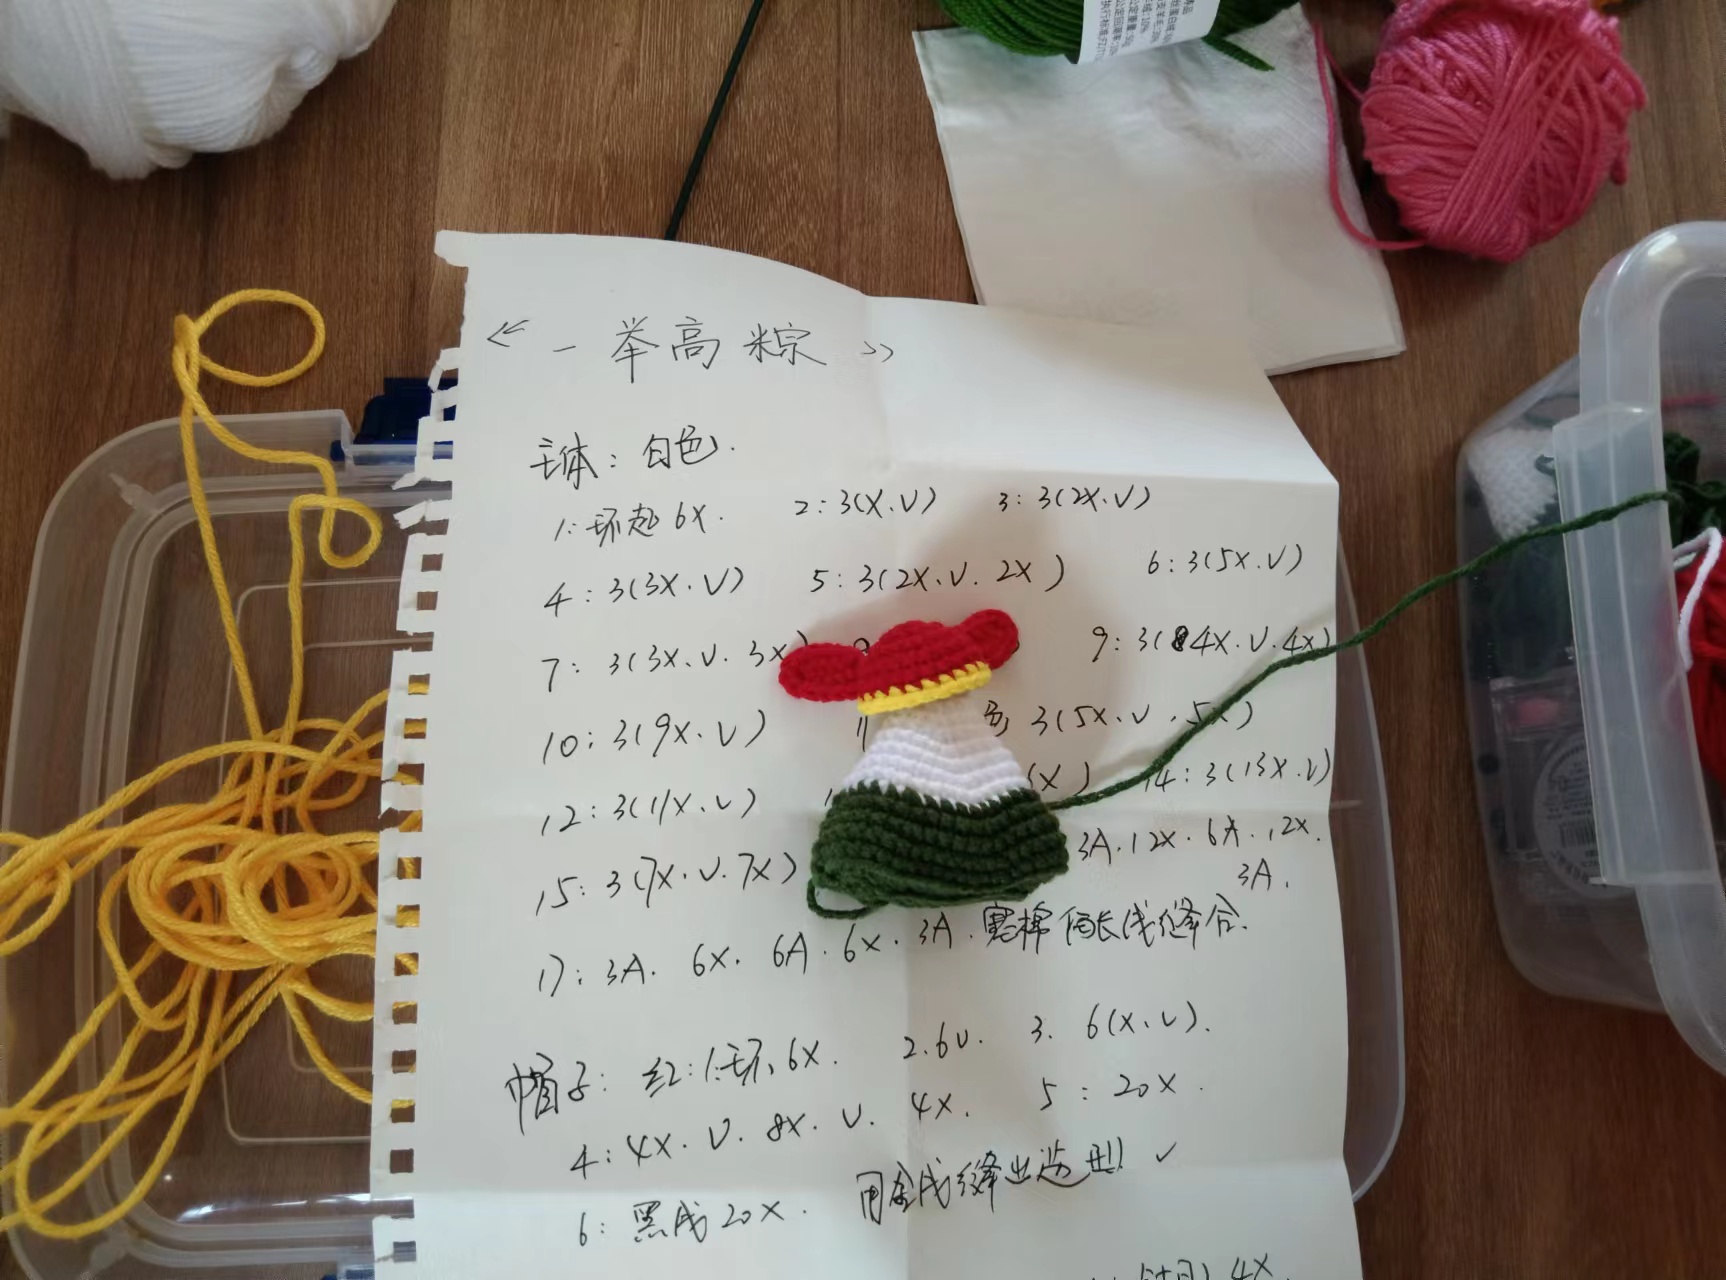 《一举高粽》
主体：白色.
1:环起6X. 2:3(X.V) 3:3(2X.V)
4:3(3X.V) 5:3(2X.V.2X) 6:3(5X.V)
7:3(3X.V.3X) 9:3(4X.V.4X)
10:3(9X.V) 11 色 3(5X.V.5X)
12:3(11X.V) X) 14:3(13X.V)
15:3(7X.V.7X) 3A.12X.6A.12X.
3A.
17:3A.6X.6A.6X.3A.塞棉 留长线缝合.
帽子:红:1:环,6X. 2.6V. 3.6(X.V).
4:4X.V.8X.V.4X. 5:20X.
6:黑线20X. 用金线缝出造型! ✓
4X.